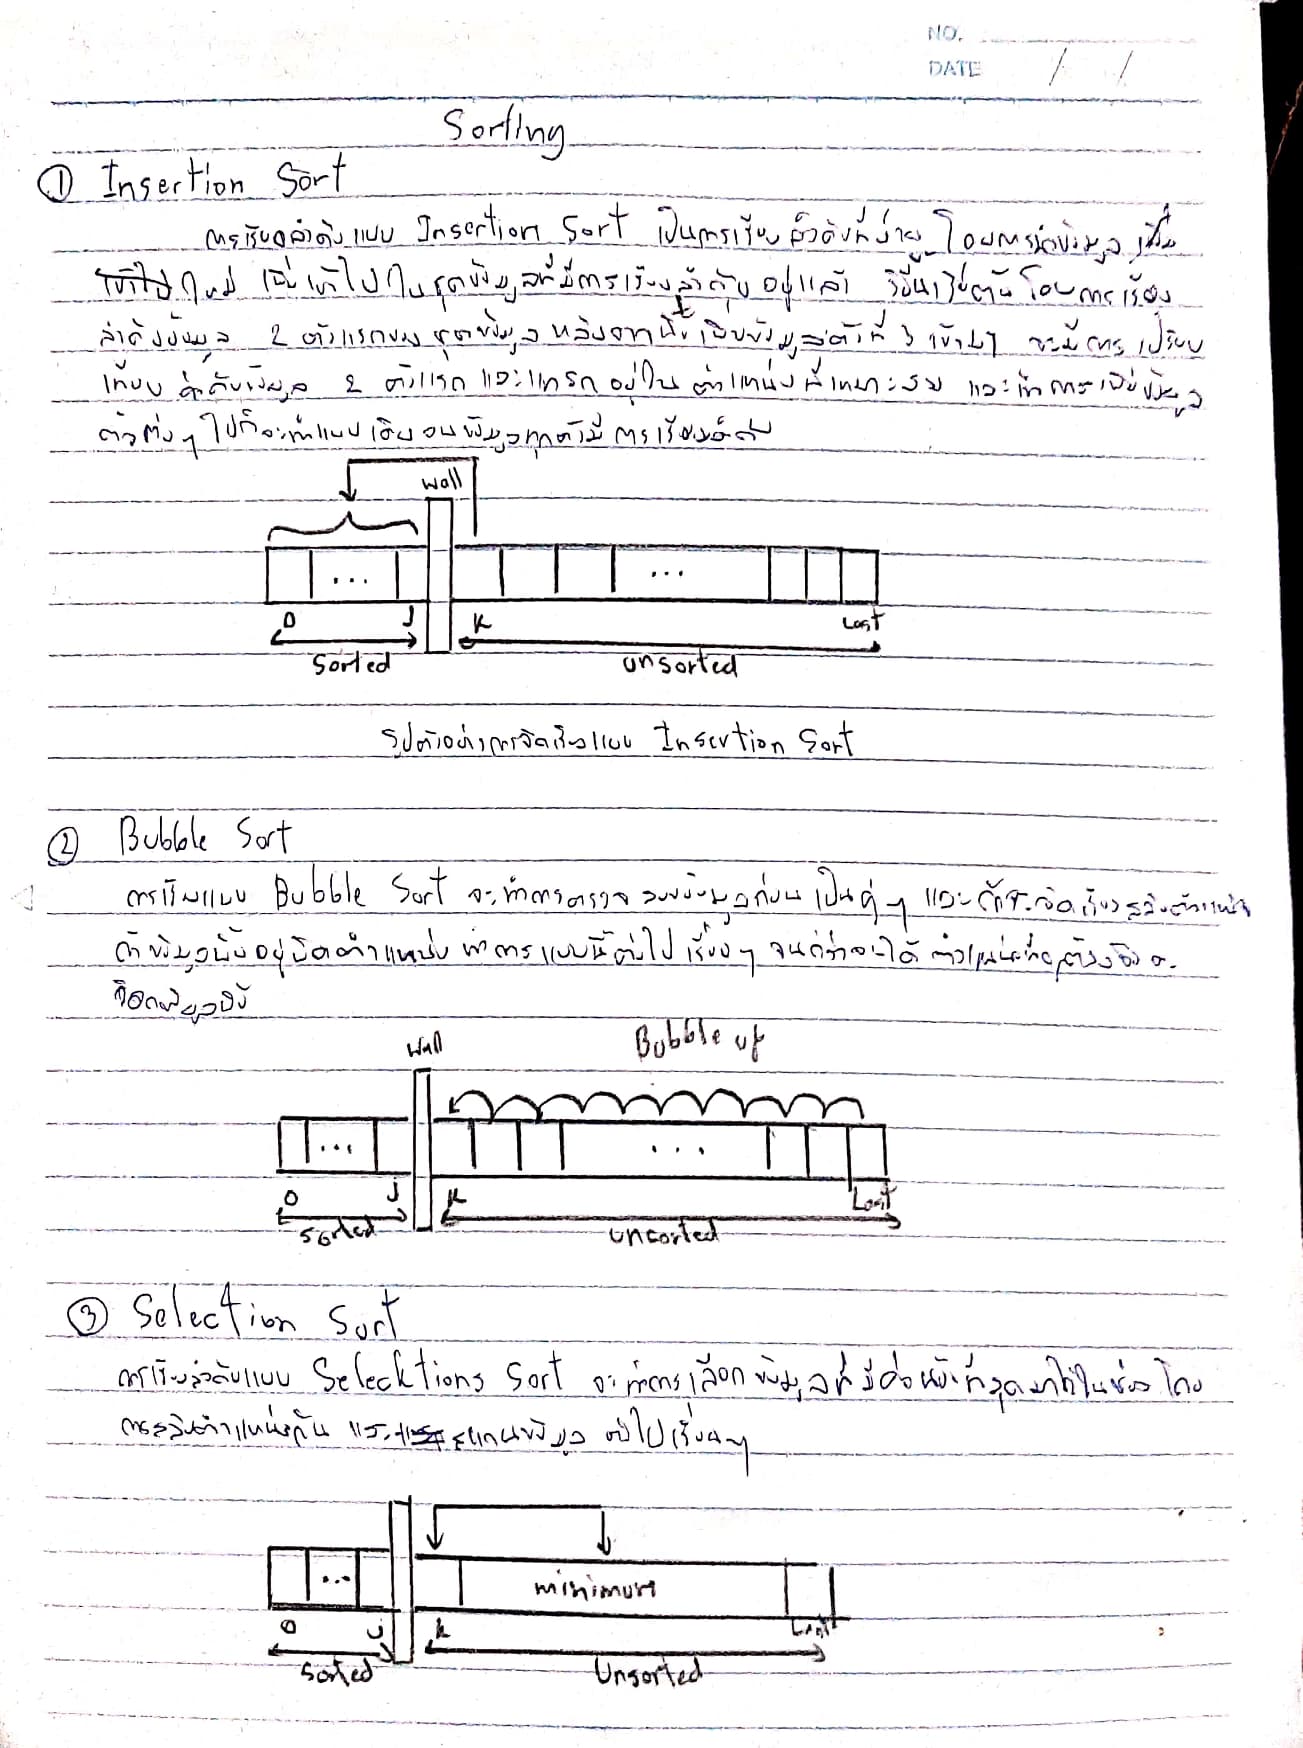 NO.
DATE / /
Sorting
① Insertion Sort
การเรียงลำดับแบบ Insertion Sort เป็นการเรียงลำดับที่ง่าย โดยการนำข้อมูล
ใหม่ เพิ่มเข้าไปในชุดข้อมูลที่มีการเรียงลำดับ อยู่แล้ว โดยการเรียง
ลำดับข้อมูล 2 ตัวแรกของ ชุดข้อมูล หลังจากนี้ เพิ่มข้อมูลตัวที่ 3 เข้ามา จะมีการ เปรียบ
เทียบ ลำดับข้อมูล 2 ตัวแรก และแทรก อยู่ใน ตำแหน่งที่เหมาะสม และทำการเพิ่มข้อมูล
ตัวต่อๆ ไปก็จะทำแบบเดิม จนข้อมูลทุกตัวมี การเรียงลำดับ
Wall
...
...
0 J K Last
Sorted unsorted
รูปตัวอย่างการจัดเรียงแบบ Insertion Sort
② Bubble Sort
การเรียงแบบ Bubble Sort จะทำการตรวจสอบข้อมูลก่อน เป็นคู่ๆ และ
ถ้าข้อมูลนั้นอยู่ผิดตำแหน่ง ทำการ แบบนี้ต่อไป เรื่อยๆ จนกว่าจะได้ ตำแหน่งที่ถูกต้อง
Wall Bubble up
...
...
0 J K Last
Sorted uncorted
③ Selection Sort
การเรียงลำดับแบบ Selecktions Sort จะทำการเลือก ข้อมูลที่มีค่าน้อยที่สุดมาไว้ในช่อง โดย
การสลับตำแหน่งกัน ข้อมูล ต่อไปเรื่อยๆ
... minimum
0 J K Last
Sorted Unsorted